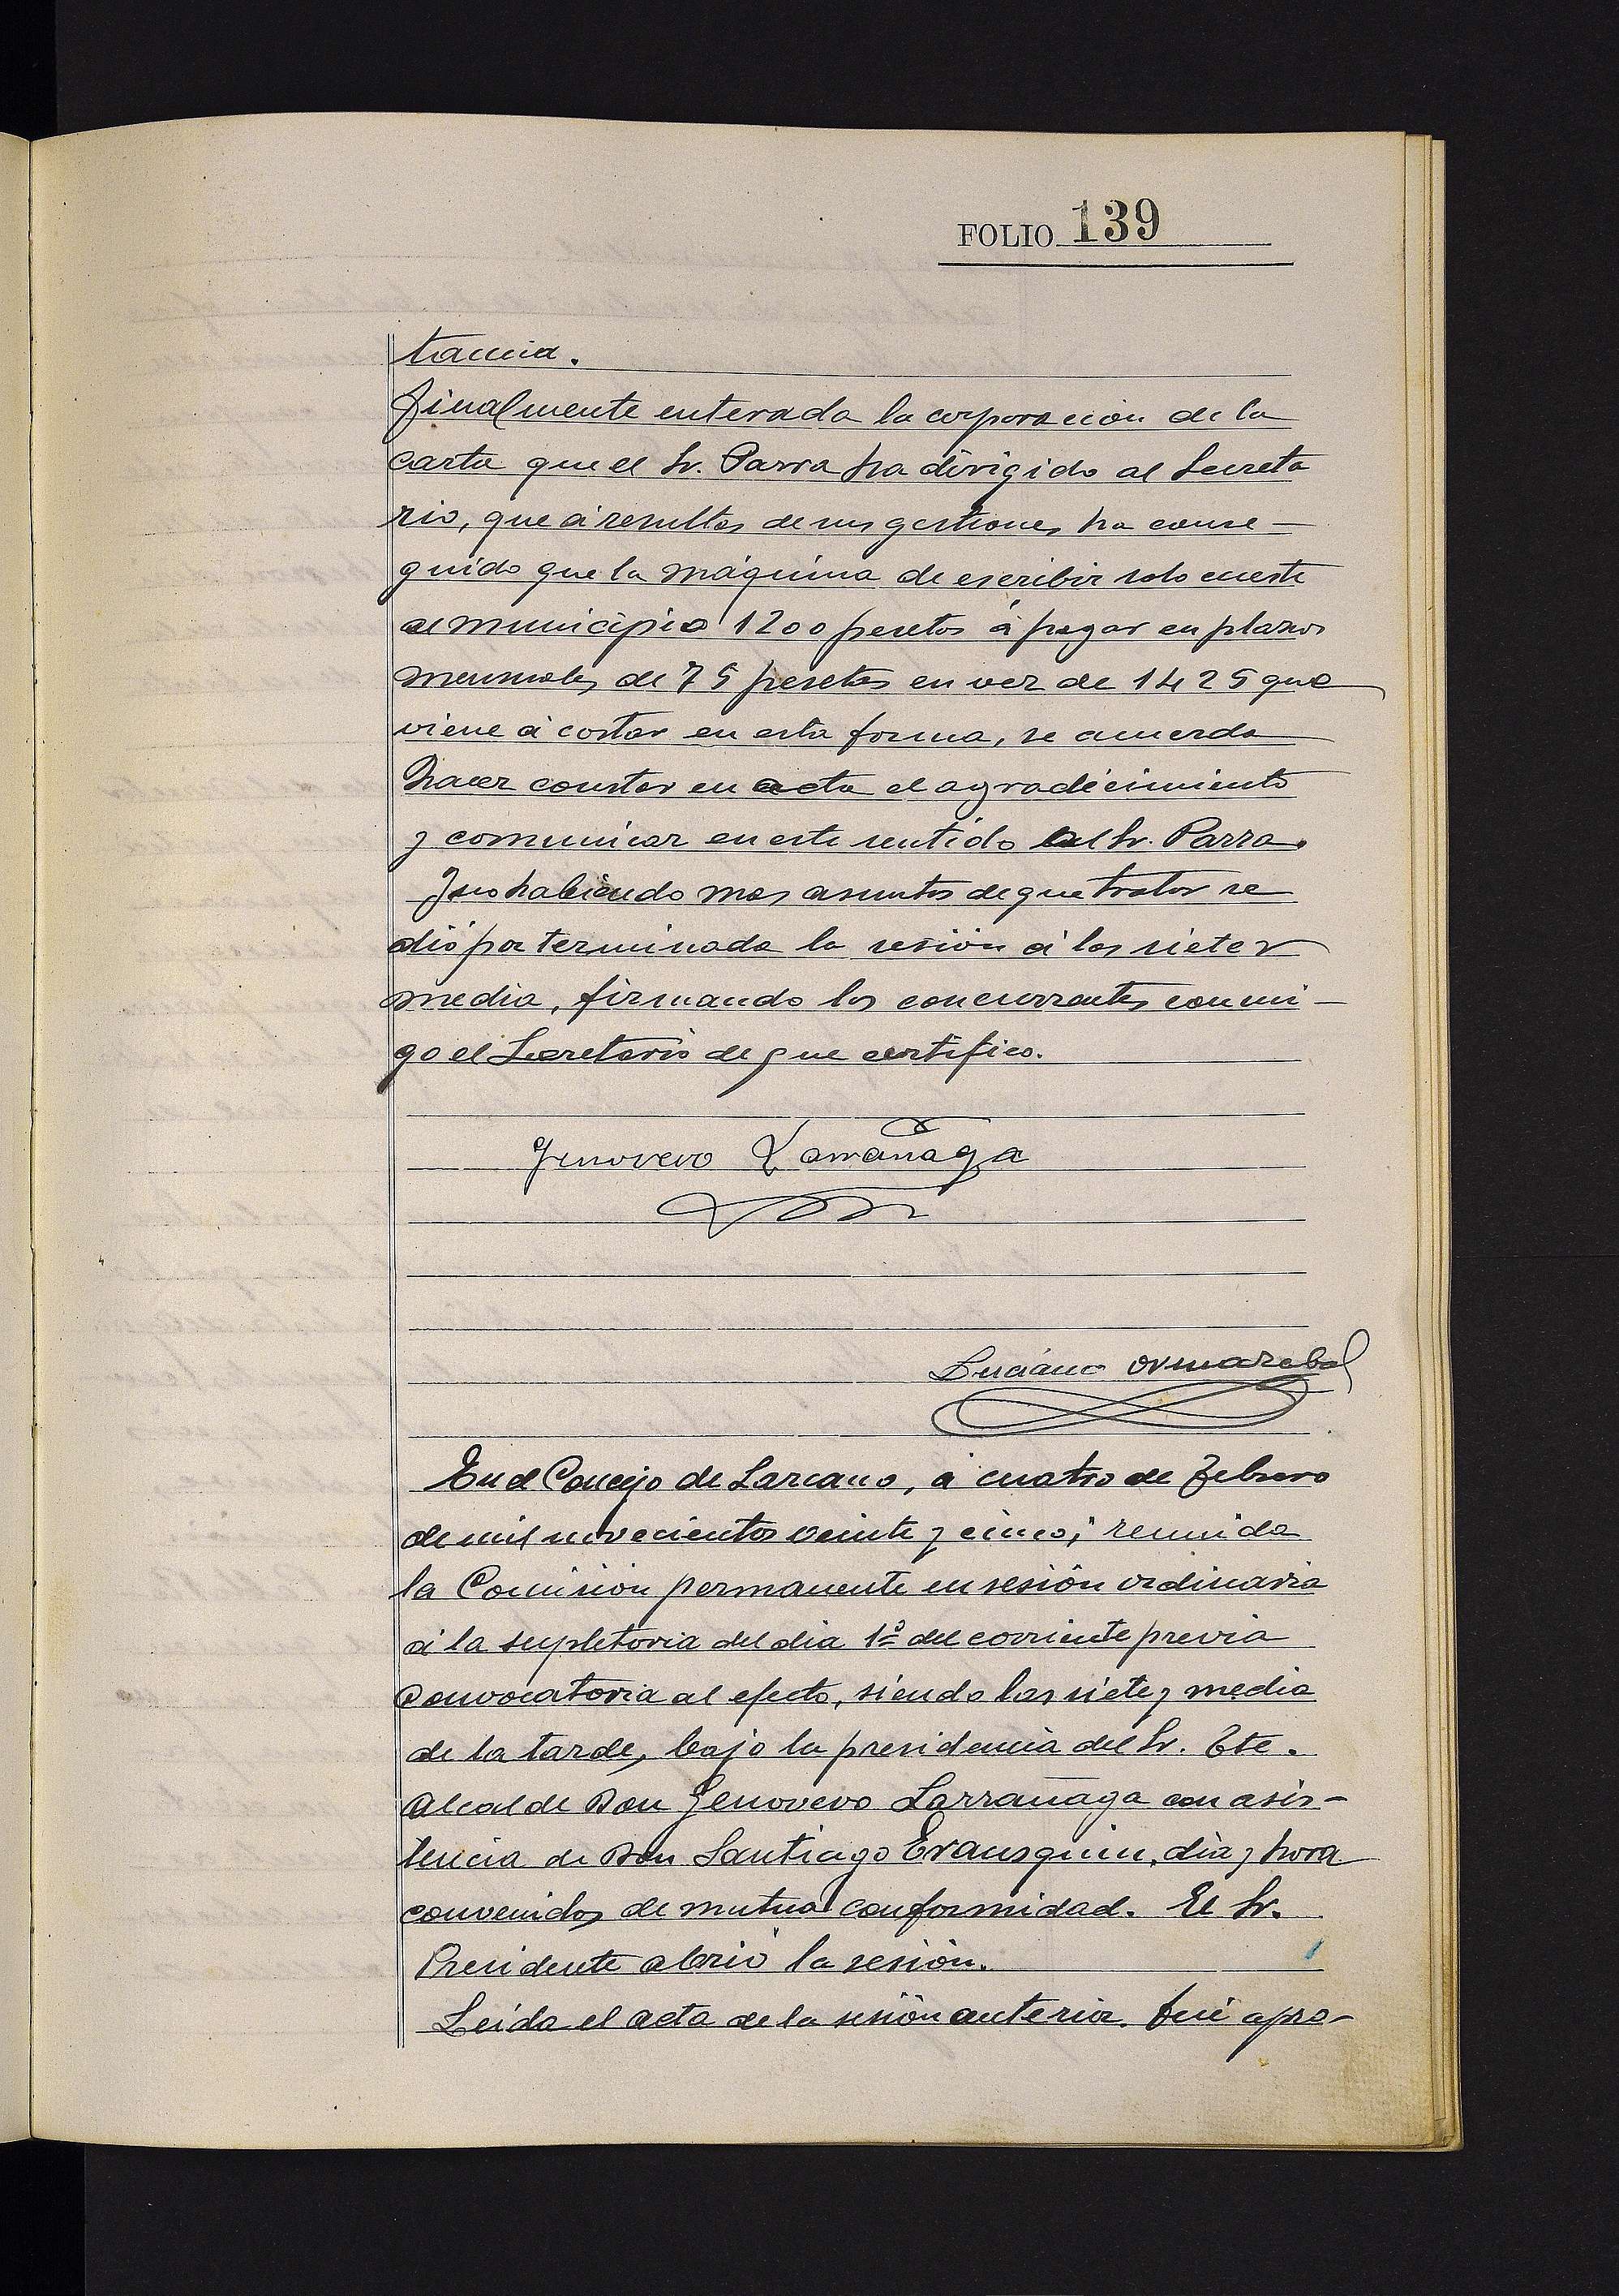 FOLIO 139
tancia.
Finalmente enterada la corporacion de la
carta que el Sr. Parra ha dirigido al Secreta
rio, que á resultas de sus gestiones ha conse-
guido que la máquina de escribir solo cueste
al municipio 1200 pesetas á pagar en plazos
mensuales de 75 pesetas en vez de 1425 que
viene á costar en esta forma, se acuerda
hacer constar en acta el agradecimiento
y comunicar en este sentido al Sr. Parra.
Y no habiendo mas asuntos de que tratar se
dió por terminada la sesión á las siete y
media, firmando los concurrentes conmi-
go el Secretario de que certifico.
Genovevo Larrañaga
Luciano Ormazabal
En el Concejo de Lazcano, á cuatro de Febrero
de mil novecientos veinte y cinco; reunida
la Comision permanente en sesión ordinaria
á la supletoria del dia 1º del corriente previa
convocatoria al efecto, siendo las siete y media
de la tarde, bajo la presidencia del Sr. Tte.
Alcalde Don Genovevo Larrañaga con asis-
tencia de Don Santiago Erausquin, dia y hora
convenidos de mutua conformidad. El Sr.
Presidente abrió la sesión.
Leida el acta de la sesión anterior. fué apro-